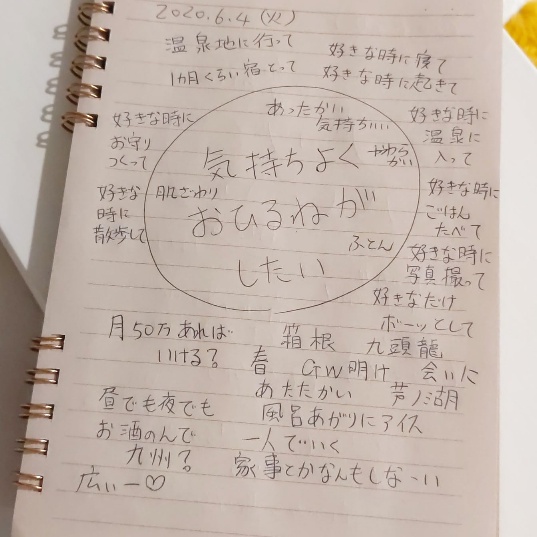 2020.6.4 (火)
温泉地に行って
1カ月くらい宿とって
好きな時に寝て
好きな時に起きて
好きな時に
お守り
つくって
好きな
時に
散歩して
あったかい
気持ちいい
気持ちよく
やわらかい
肌ざわり
おひるねが
ふとん
したい
好きな時に
温泉に
入って
好きな時に
ごはん
たべて
好きな時に
写真撮って
好きなだけ
ボーッとして
月50万あれば
いける?
箱根 九頭龍
春 GW明け 会いに
あたたかい 芦ノ湖
昼でも夜でも
お酒のんで
風呂あがりにアイス
一人でいく
九州?
家事とかなんもしなーい
広いー♡